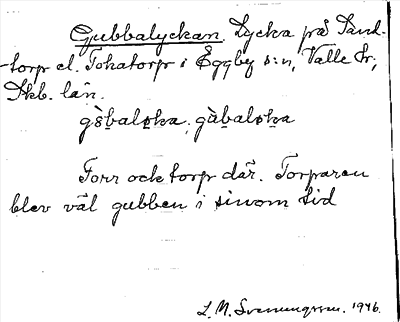 Gubbalyckan. Lycka på Sand-
torp el. Tokatorp i Eggby s:n, Valle hr,
Skb. län.
Torr ock torp där. Torparen
blev väl gubben i sinom tid
L. M. Svenungsson. 1946.